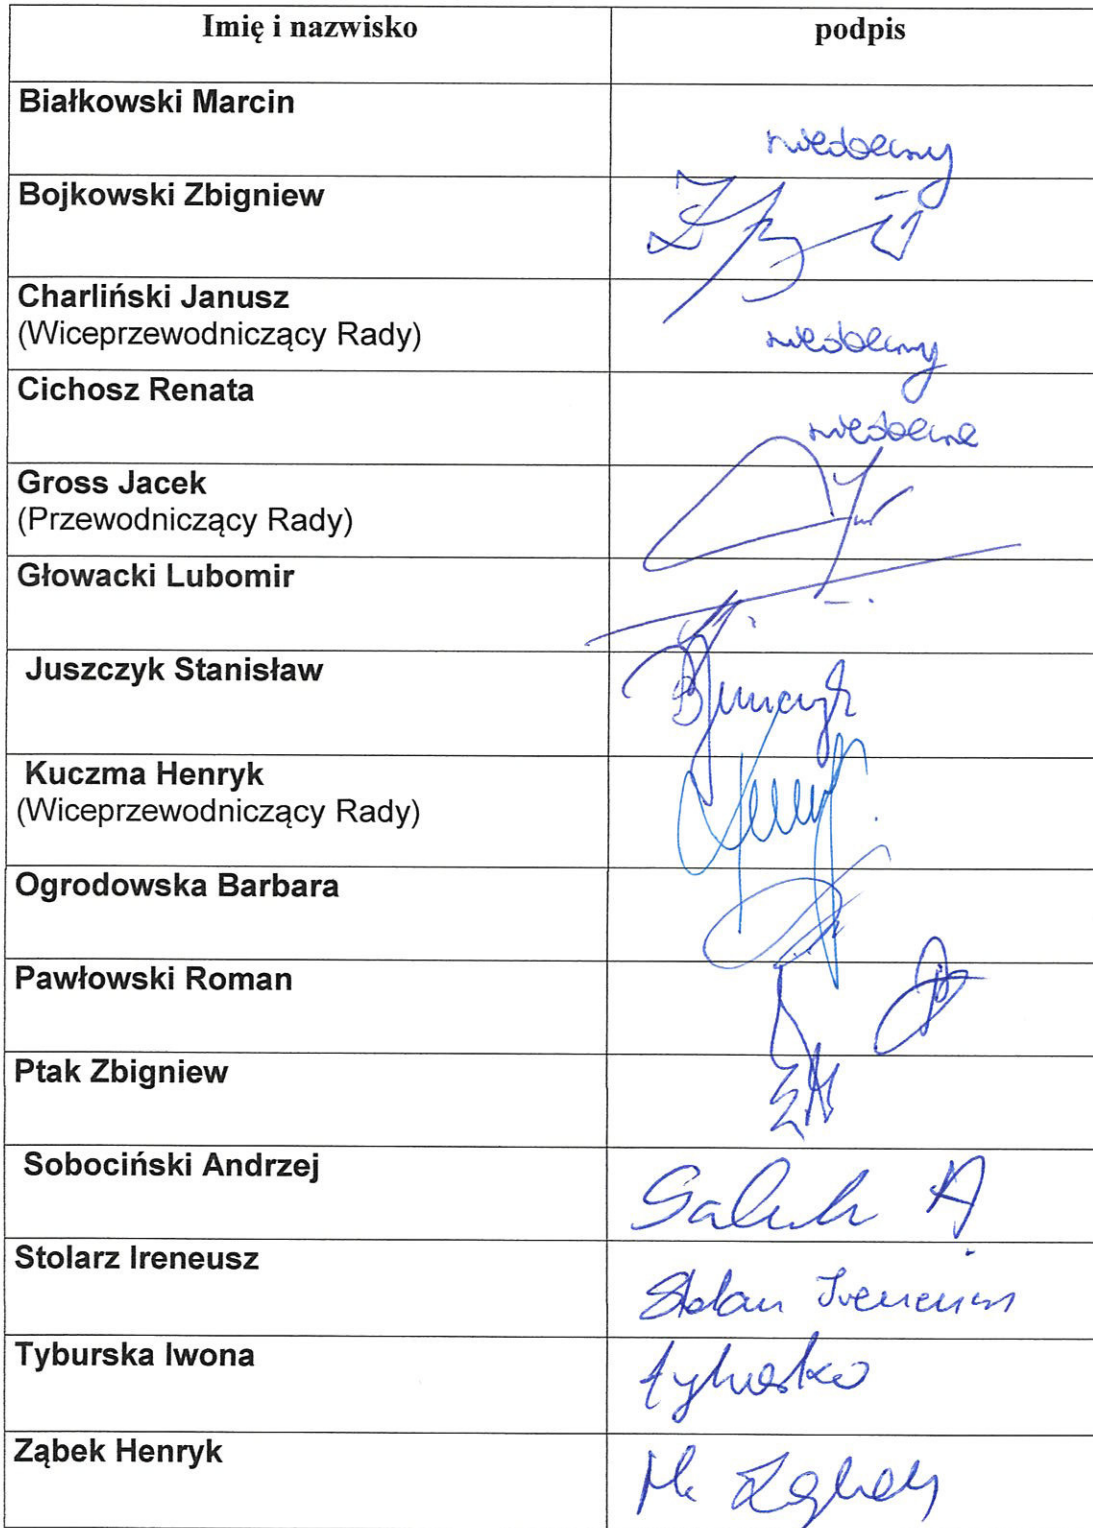 Imię i nazwisko podpis
Białkowski Marcin
nieobecny
Bojkowski Zbigniew
Charliński Janusz
(Wiceprzewodniczący Rady)
nieobecny
Cichosz Renata
nieobecna
Gross Jacek
(Przewodniczący Rady)
Głowacki Lubomir
Juszczyk Stanisław
Kuczma Henryk
(Wiceprzewodniczący Rady)
Ogrodowska Barbara
Pawłowski Roman
Ptak Zbigniew
Sobociński Andrzej
Stolarz Ireneusz
Stolarz Ireneusz
Tyburska Iwona
Tyburska
Ząbek Henryk